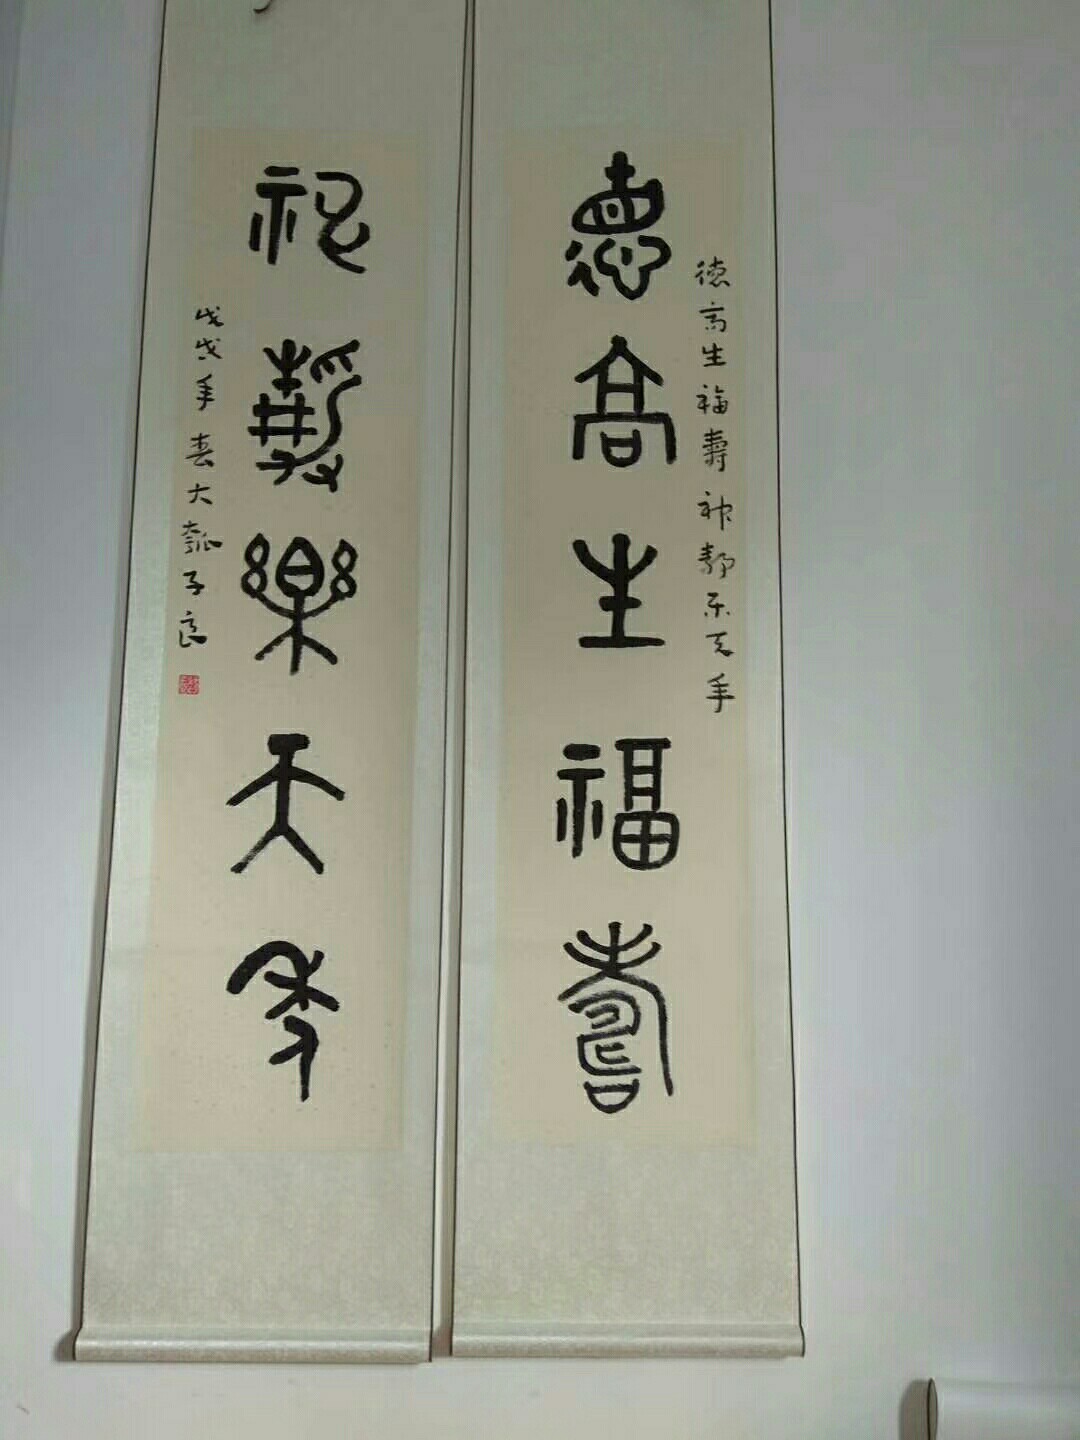 德高生福壽
德高生福壽神靜樂天年
神靜樂天年
戊戌年春大瓠子良